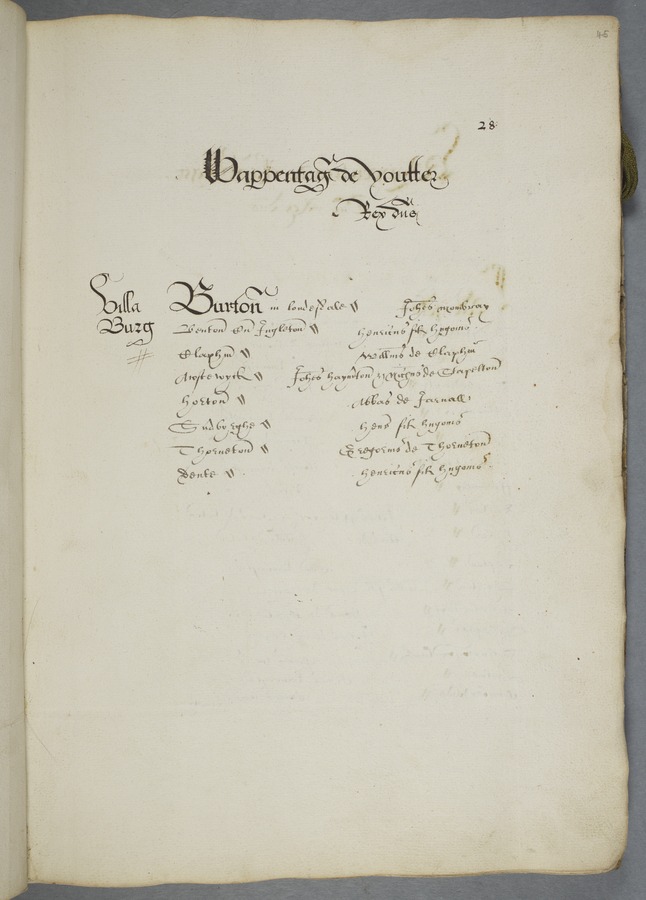 28
Wappentag de Youtter
Rex Dns
Villa Burg
Burton in londesdale Johes mowbray
Benton En Ingleton henricus fil hugonis
Claphm Willms de Claphm
Austewyck Johes
horton Abbas de Jarvall
henr fil hugonis
Thorneton Gregorius de Thorneton
Dente henricus fil hugonis